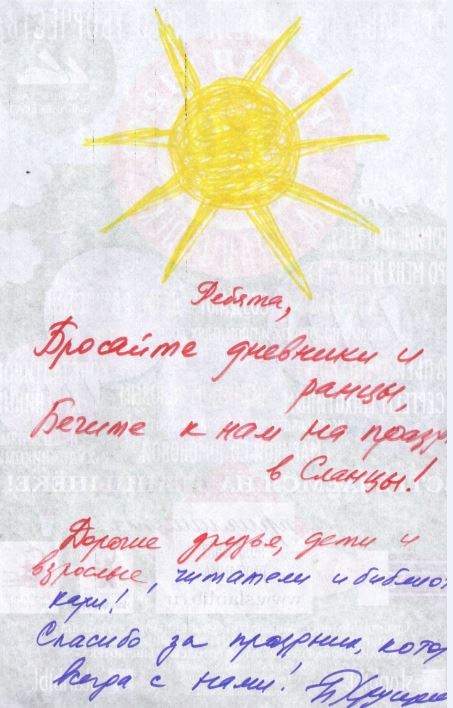 Ребята,
Бросайте дневники и
ранцы,
Бегите к нам на праздн
в Сланцы!
Дорогие друзья, дети и
взрослые, читатели и библиот
кари!
Спасибо за праздник, котор
всегда с нами!